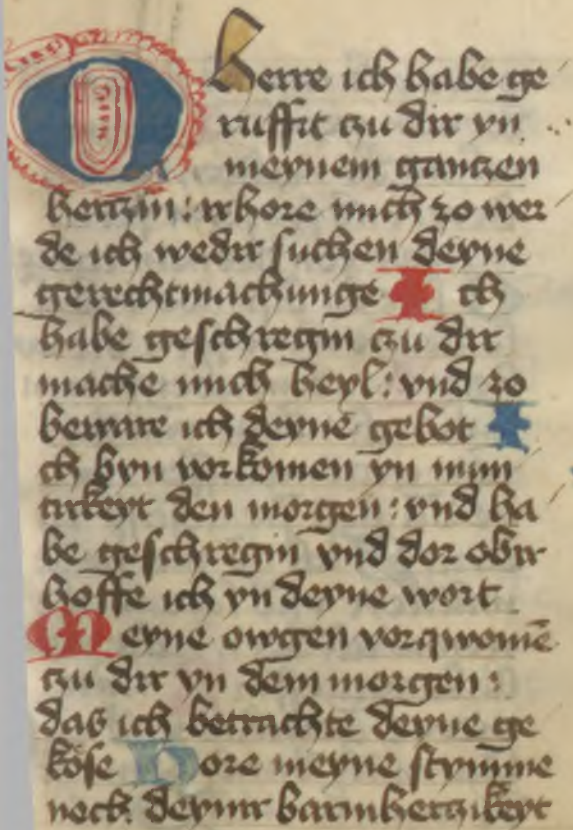 O herre ich habe ge
ruffit czu dir yn
meynem ganczen
herczin: irhore mich zo wer
de ich wedir suchen deyne
gerechtmachunge I ch
habe geschregin czu dir
mache mich heyl: vnd zo
beware ich deyne gebot I
ch byn vorkomen yn
den morgen: vnd ha
be geschregin vnd dor obir
hoffe ich yn deyne wort
Meyne owgen vorqwomē
czu dir yn dem morgen:
das ich betrachte deyne ge
köse Hore meyne stymme
noch deynir barmherczikeyt